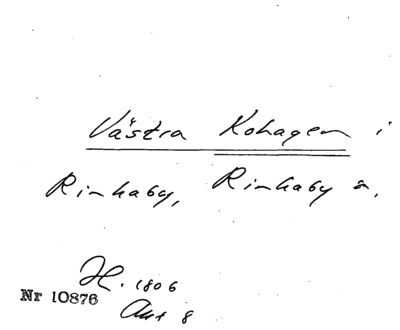 Västra Kohagen i
Rinkaby, Rinkaby s.
H. 1806
Nr 10876
Akt 8